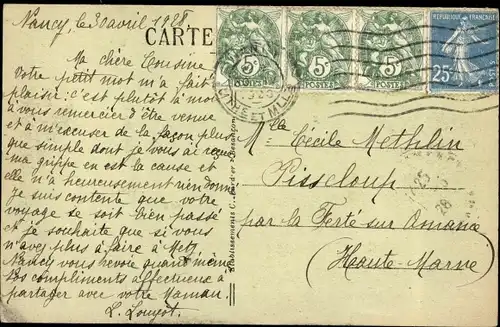 Nancy, le 30 avril 1928
CARTE
Ma chère Cousine
Votre petit mot m'a fait
plaisir: c'est plutôt à moi
à vous remercier d'être venue
et à m'excuser de la façon plus
que simple dont je vous ai reçue
ma grippe en est la cause et
elle n'a heureusement rien donné.
Je suis contente que votre
voyage se soit bien passé
et je souhaite que si vous
n'avez plus à faire à Metz
Nancy vous revoie quand même.
Les compliments affectueux à
partager avec votre Maman.
L. Lougot.
5c
POSTES
5c
POSTES
5c
POSTES
RÉPUBLIQUE FRANÇAISE
25c
NANCY
MTHE ET MLLE
Mlle Cécile Methlin
Pisseloup
par la Ferté sur Amance
Haute-Marne
25
28